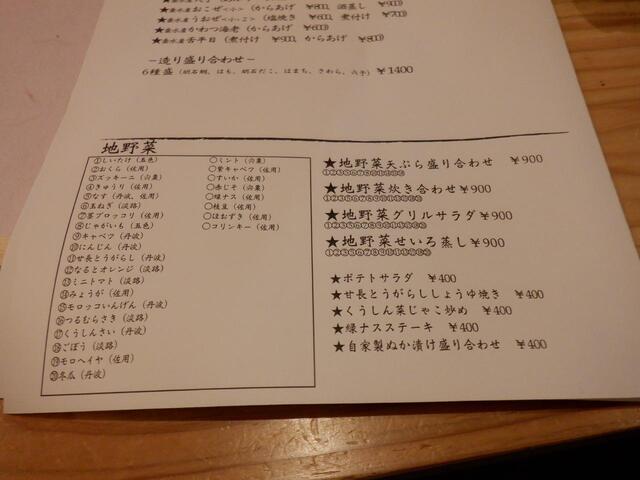 ★垂水産おこぜ<小>(からあげ ￥800, 酒蒸し ￥900)
★垂水産うおぜ<小>(塩焼き ￥600, 煮付け ￥700)
★垂水産かわつ海老(からあげ ￥600)
★垂水産舌平目(煮付け ￥900, からあげ ￥800)
－造り盛り合わせ－
6種盛(明石鯛, はも, 明石だこ, はまち, さわら, 六子) ￥1400
地野菜
①しいたけ(五色)
②おくら(佐用)
③ズッキーニ(宍粟)
④きゅうり(佐用)
⑤なす(丹波、佐用)
⑥玉ねぎ(淡路)
⑦茎ブロッコリ(佐用)
⑧じゃがいも(五色)
⑨キャベツ(丹波)
⑩にんじん(丹波)
⑪せ長とうがらし(丹波)
⑫なるとオレンジ(淡路)
⑬ミニトマト(淡路)
⑭みょうが(佐用)
⑮モロッコいんげん(丹波)
⑯つるむらさき(淡路)
⑰くうしんさい(丹波)
⑱ごぼう(淡路)
⑲モロヘイヤ(佐用)
⑳冬瓜(丹波)
○ミント(宍粟)
○紫キャベツ(佐用)
○すいか(佐用)
○赤じそ(宍粟)
○緑ナス(佐用)
○枝豆(佐用)
○ほおずき(佐用)
○コリンキー(佐用)
★地野菜天ぷら盛り合わせ ￥900
★地野菜炊き合わせ￥900
★地野菜グリルサラダ￥900
★地野菜せいろ蒸し￥900
★ポテトサラダ ￥400
★せ長とうがらししょうゆ焼き ￥400
★くうしん菜じゃこ炒め ￥400
★緑ナスステーキ ￥400
★自家製ぬか漬け盛り合わせ ￥400